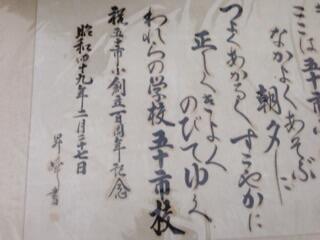 ここは五十市
なかよくあそぶ
朝夕に
つよくあかるくすこやかに
正しくきよく
のびてゆく
われらの学校五十市校
祝五十市小創立百周年記念
昭和四十九年二月二十七日
昇峰書